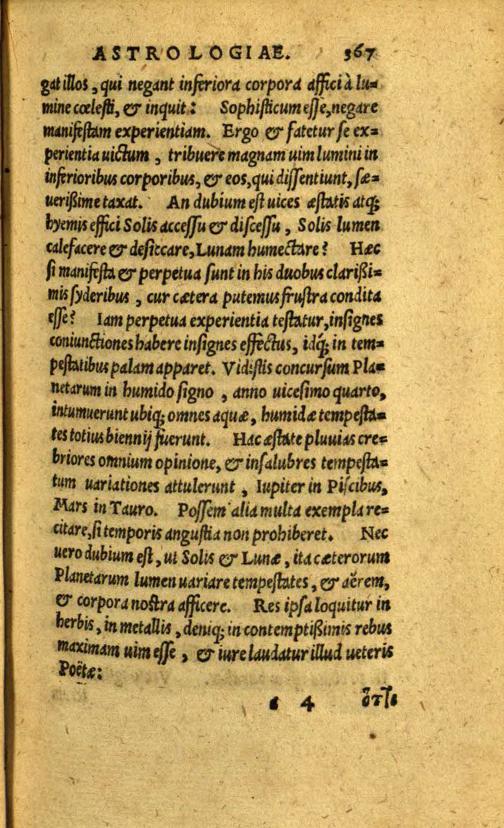 ASTROLOGIAE. 367
gat illos, qui negant inferiora corpora affici à lu-
mine cœlesti, & inquit: Sophisticum esse, negare
manifestam experientiam. Ergo & fatetur se ex-
perientia uictum, tribuere magnam uim lumini in
inferioribus corporibus, & eos, qui dissentiunt, sæ-
uerißime taxat. An dubium est uices æstatis atq;
hyemis effici Solis accessu & discessu, Solis lumen
calefacere & desiccare, Lunam humectare? Hæc
si manifesta & perpetua sunt in his duobus clarißi-
mis syderibus, cur cætera putemus frustra condita
esse? Iam perpetua experientia testatur, insignes
coniunctiones habere insignes effectus, idq; in tem-
pestatibus palam apparet. Vidistis concursum Pla-
netarum in humido signo, anno uicesimo quarto,
intumuerunt ubiq; omnes aquæ, humidæ tempesta-
tes totius biennij fuerunt. Hac æstate pluuias cre-
briores omnium opinione, & insalubres tempesta-
tum uariationes attulerunt, Iupiter in Piscibus,
Mars in Tauro. Possem alia multa exempla re-
citare, si temporis angustia non prohiberet. Nec
uero dubium est, ut Solis & Lunæ, ita cæterorum
Planetarum lumen uariare tempestates, & aërem,
& corpora nostra afficere. Res ipsa loquitur in
herbis, in metallis, deniq; in contemptißimis rebus
maximam uim esse, & iure laudatur illud ueteris
Poëtæ:
4